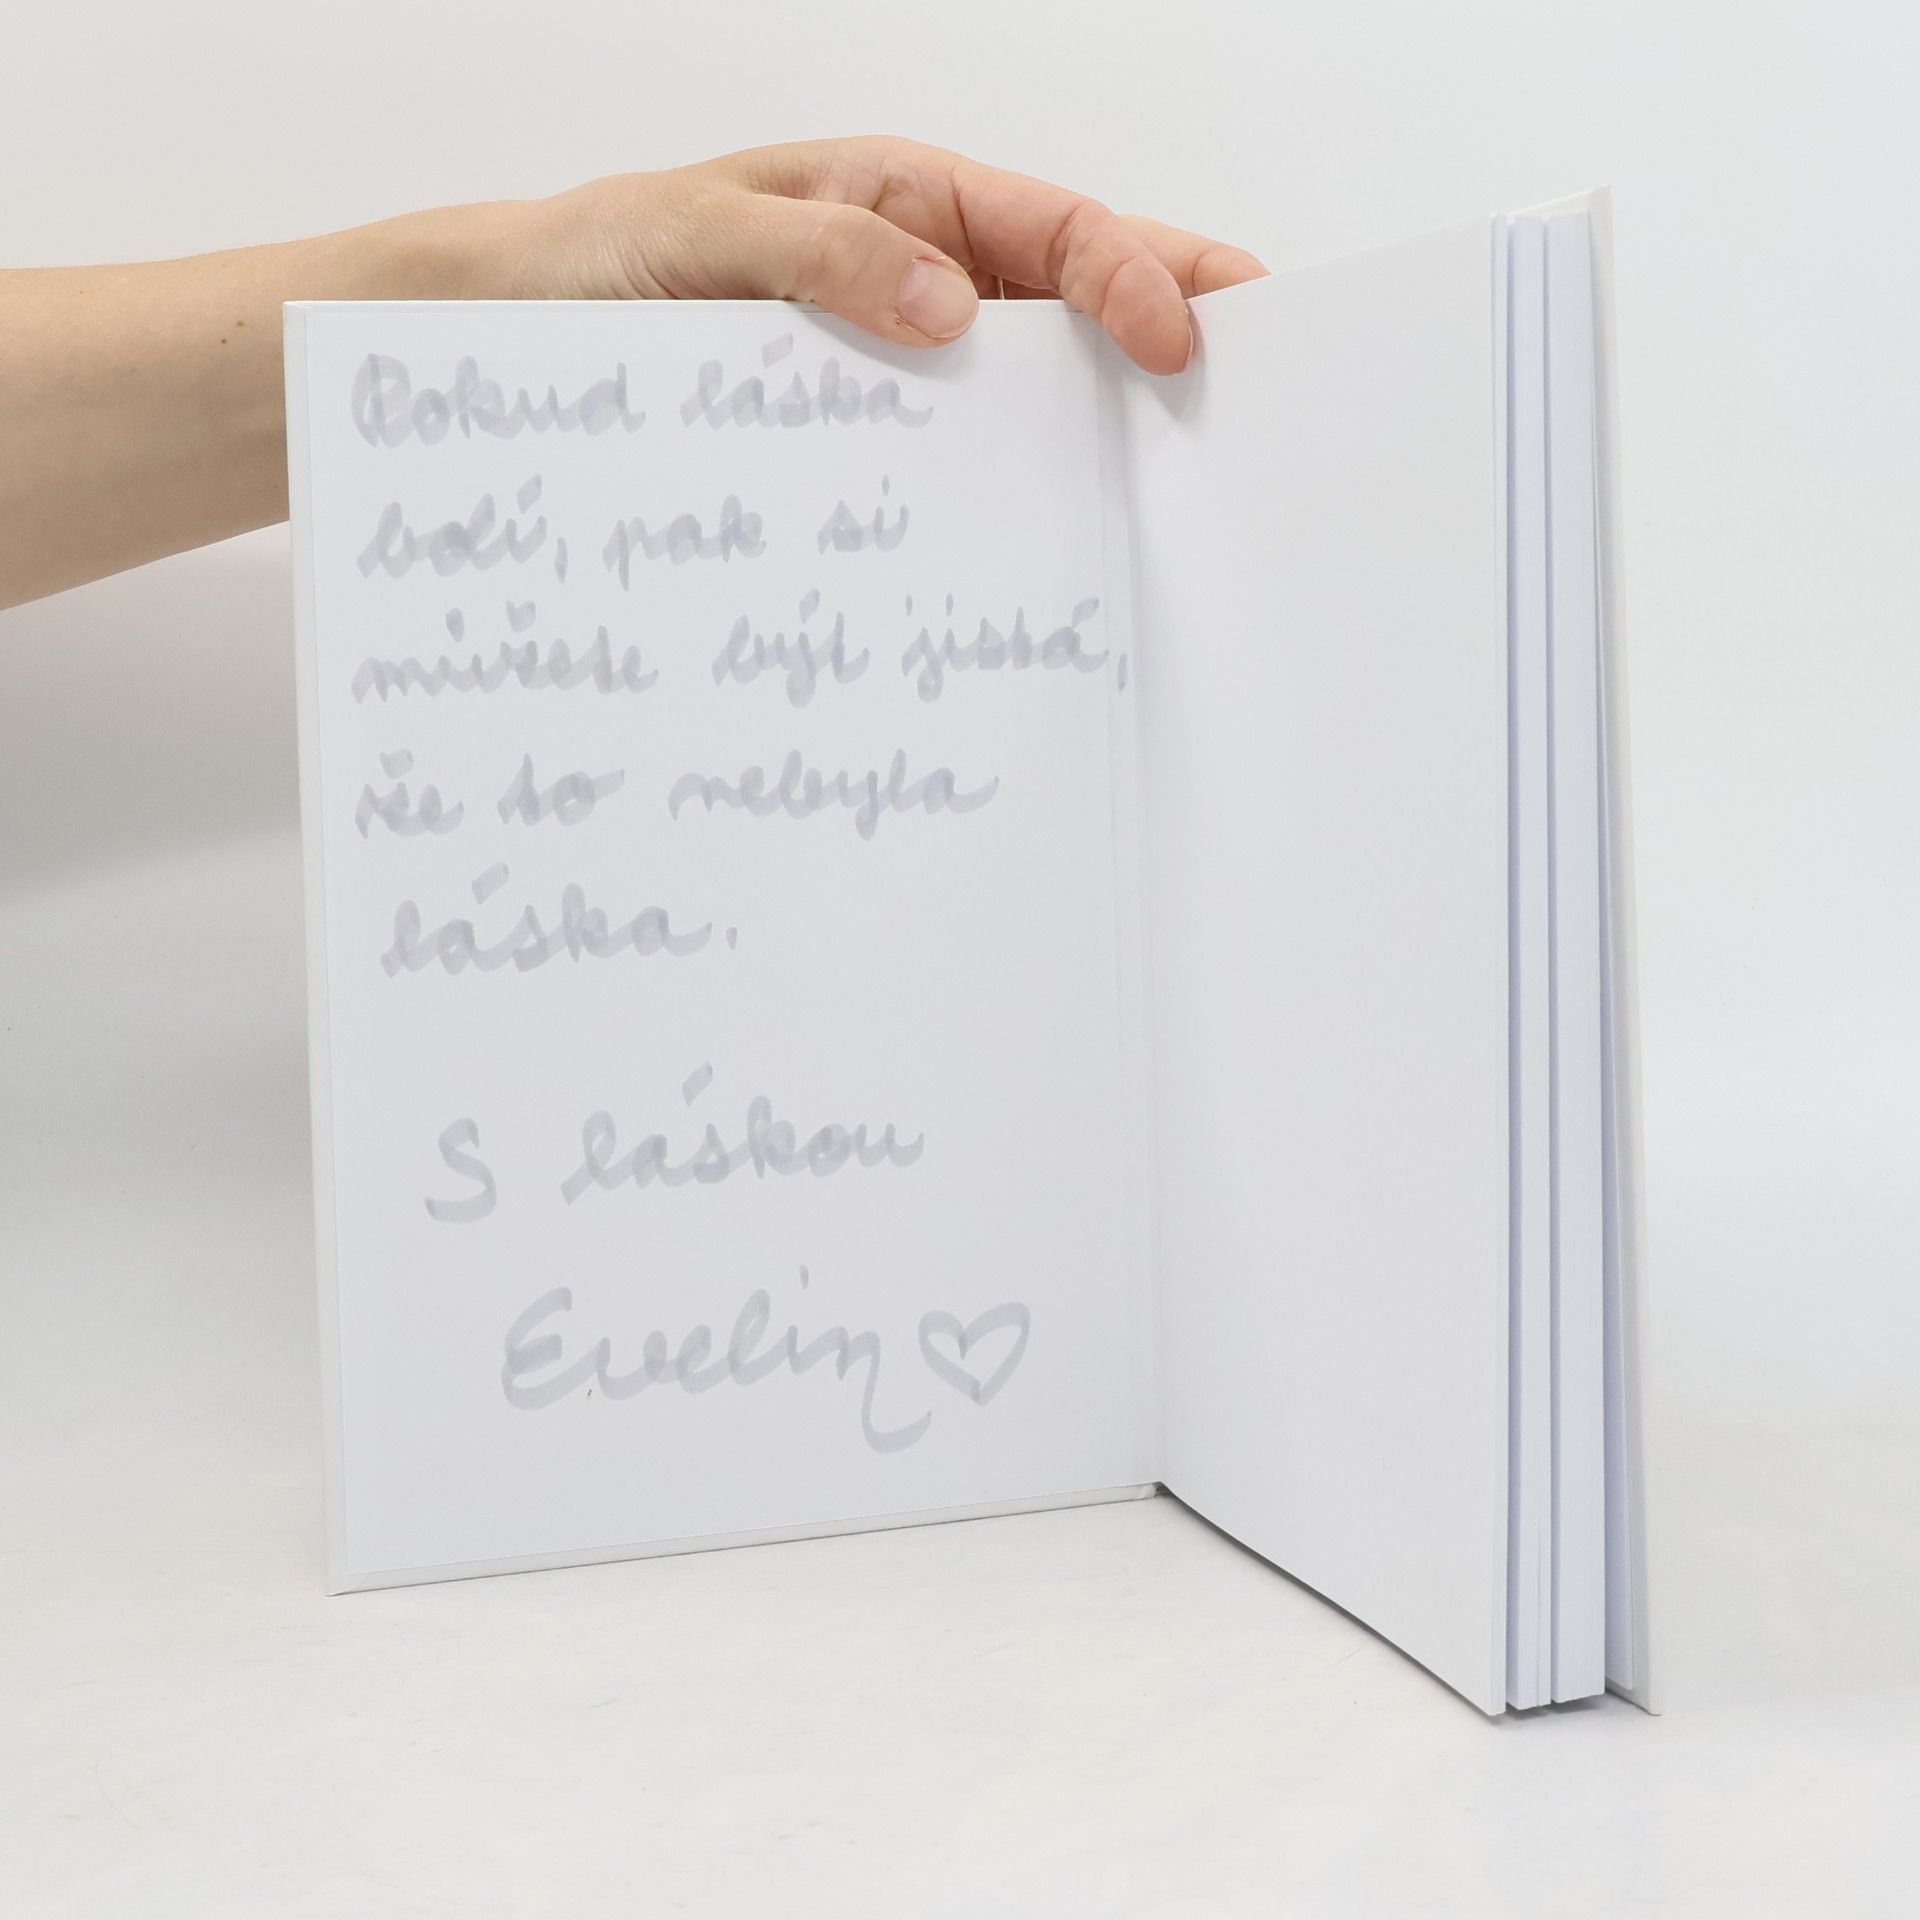 Pokud láska
bolí, pak si
můžete být jistá,
že to nebyla
láska.
S láskou
Evelin ♡